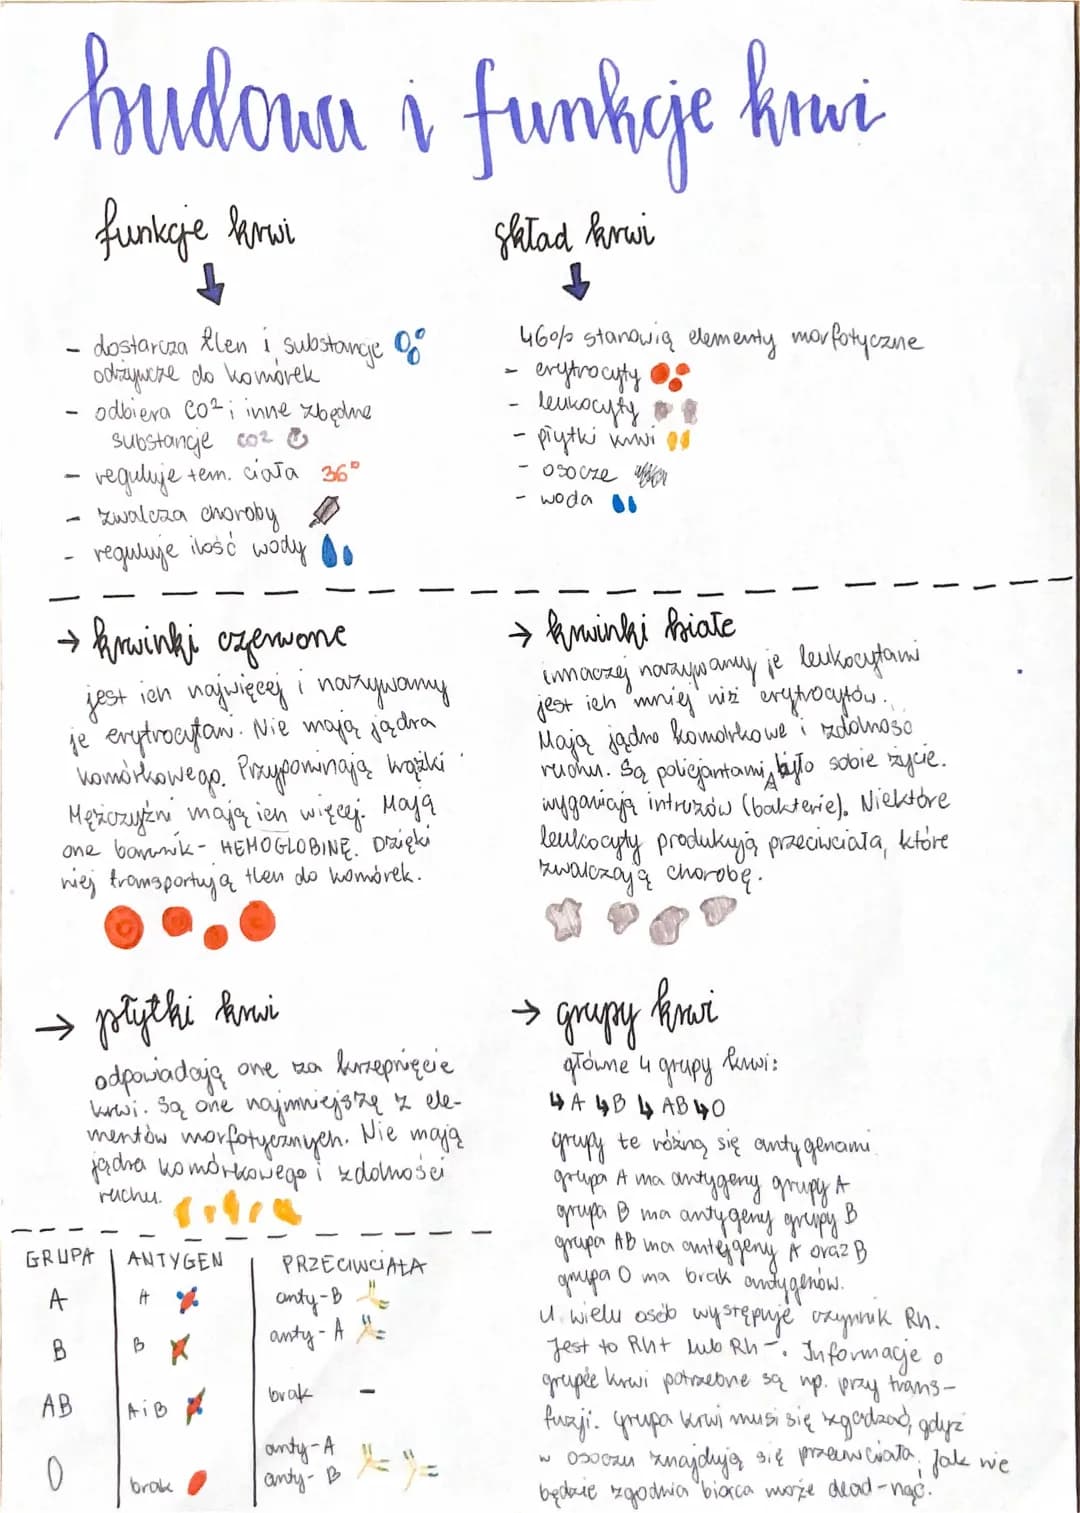 budowa i funkcje krwi
funkcje krwi
- dostarcza tlen i substancje
odżywcze do komórek
- odbiera CO² i inne zbędne
substancje CO²
- reguluje tem. ciała 36°
- zwalcza choroby
- reguluje ilość wody
skład krwi
46% stanowią elementy morfotyczne
- erytrocyty
- leukocyty
- płytki krwi
- osocze
- woda
→ krwinki czerwone
jest ich najwięcej i nazywamy
je erytrocytam. Nie mają jądra
komórkowego. Przypominają krążki
Mężczyźni mają ich więcej. Mają
one barwnik - HEMOGLOBINĘ. Dzięki
niej transportują tlen do komórek.
→ krwinki białe
inaczej nazywamy je leukocytami
jest ich mniej niż erytrocytów.
Mają jądro komórkowe i zdolność
ruchu. Są policjantami, było sobie życie.
wyganiają intruzów (bakterie). Niektóre
leukocyty produkują przeciwciała, które
zwalczają chorobę.
→ płytki krwi
odpowiadają one za krzepnięcie
krwi. Są one najmniejszę z ele-
mentów morfotycznych. Nie mają
jądra komórkowego i zdolności
ruchu.
→ grupy krwi
główne 4 grupy krwi:
↳ A ↳ B ↳ AB ↳ O
grupy te różną się antygenami.
grupa A ma antygeny grupy A
grupa B ma antygeny grupy B
grupa AB ma antygeny A oraz B
grupa O ma brak antygenów.
U wielu osób występuje czynnik Rh.
Jest to Rh+ lub Rh-. Informacje o
grupie krwi potrzebne są np. przy trans-
fuzji. Grupa krwi musi się zgadzać, gdyż
w osoczu znajdują się przeciwciała. Jak nie
będzie zgodna biorca może dead-nąć.
GRUPA ANTYGEN PRZECIWCIAŁA
A A anty-B
B B anty-A
AB A i B brak -
O brak anty-A
anty-B